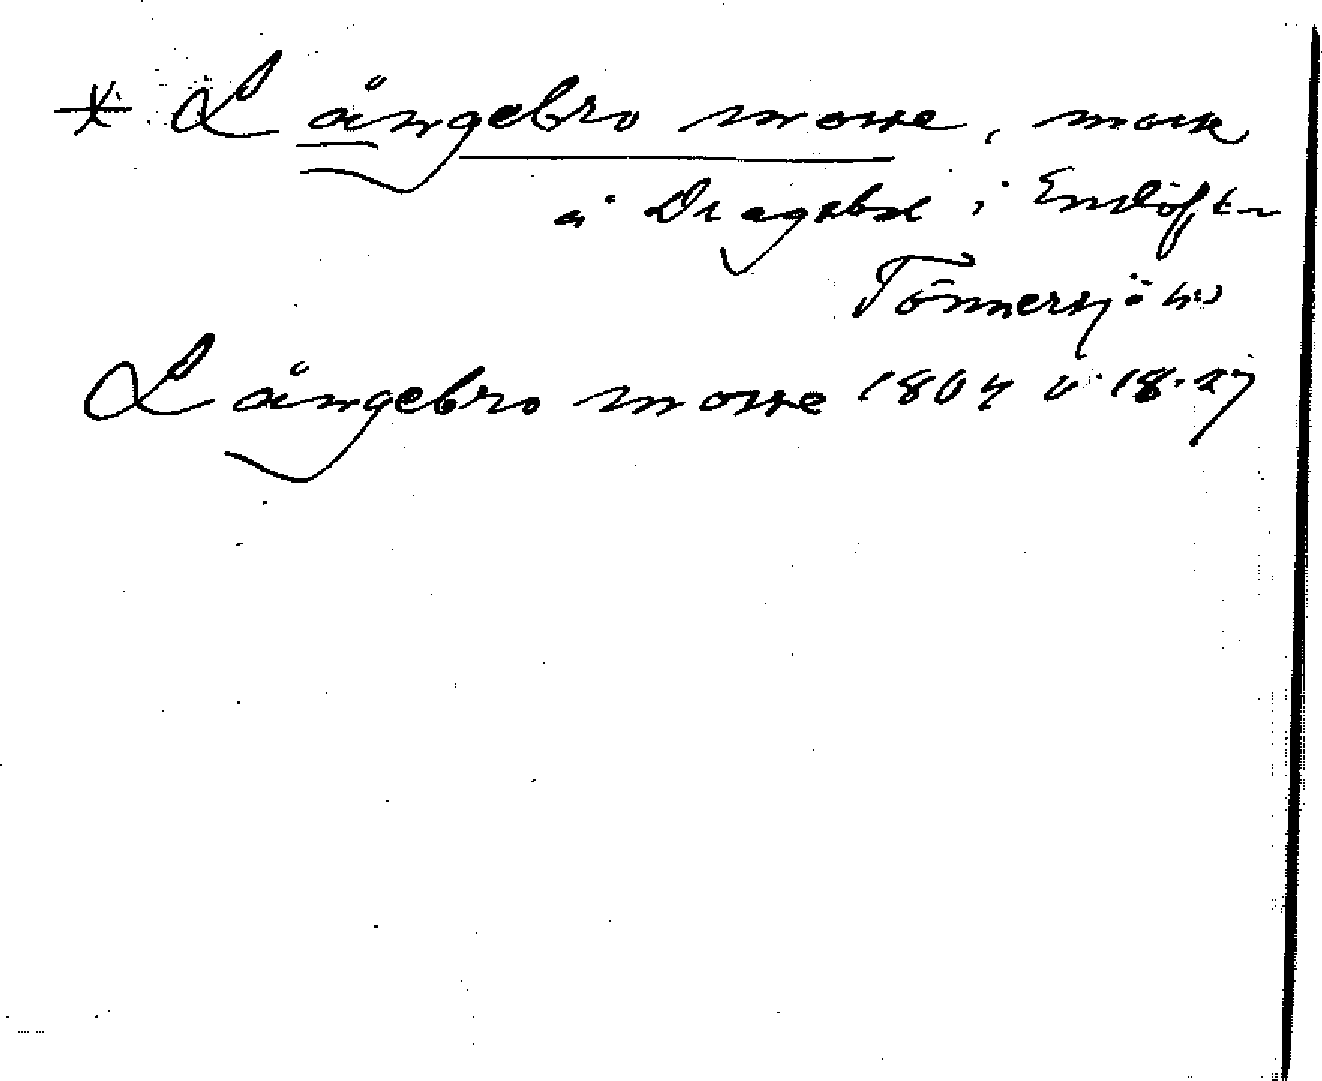 * Långebro mosse, mosse
å Dragabol i Enslöfs sn
Tönnersjö hd
Långebro mosse 1804 o. 18.27